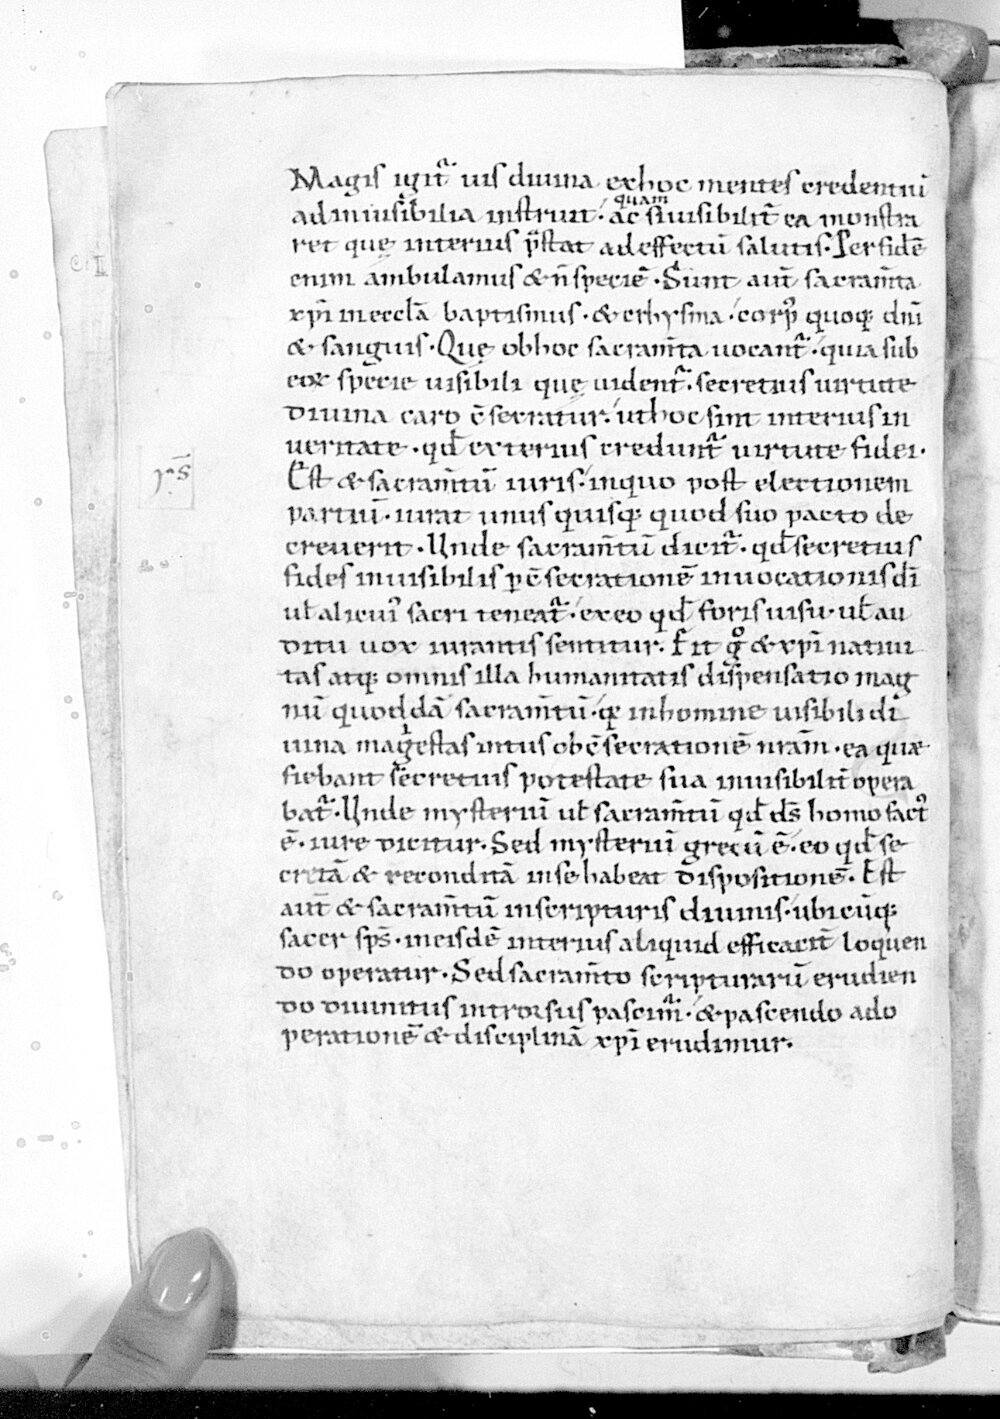 Magis igit᷑ uis diuina exhoc mentes credentiū
ad inuisibilia instruit · quam ac si uisibilit̄ ea monstra
ret quę interius p̄stat ad effectū salutis · Per fidē
enim ambulamus & n̄ speciē · Sunt aut̄ sacram̄ta
xp̄i in eccłā baptismus · & crhysma · corpꝰ quoq; dn̄i
& sanguis · Quę ob hoc sacram̄ta uocant᷑ · quia sub
eoꝝ specie uisibili quę uident᷑ · secretius uirtute
diuina caro c̄secratur · ut hoc sint interius in
ueritate · qđ exterius credunt᷑ uirtute fidei ·
Est & sacram̄tū iuris · in quo post electionem
partiū · iurat unus quisq; quod suo pacto de
creuerit · Unde sacram̄tū dicit᷑ · qđ secretius
fides inuisibilis ꝑ c̄secrationē inuocationis dī
uł alicuiꝰ sacri teneat᷑ · ex eo qđ foris uisu · uł au
ditu uox iurantis sentitur · Fit gͦ & xp̄i natiui
tas atq; omnis illa humanitatis dispensatio mag
nū quoddā sacram̄tū · qꝛ in homine uisibili di
uina magestas intus ob c̄secrationē nr̄am · ea quæ
fiebant secretius potestate sua inuisibilit̄ opera
bat᷑ · Unde mysteriū uł sacram̄tū qđ d̄s homo factꝰ
ē · iure dicitur · Sed mysteriū grecū ē · eo qđ se
cretā & reconditā in se habeat dispositionē · Est
aut̄ & sacram̄tū in scripturis diuinis · ubicūq;
sacer sp̄s · in eisdē interius aliquid efficacit̄ loquen
do operatur · Sed sacram̄to scripturarū erudien
do diuinitus introrsus pascim᷑ · & pascendo ad o
perationē & disciplinā xp̄i erudimur ·